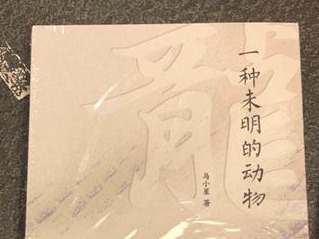 龍
一种未明的动物
马小星 著